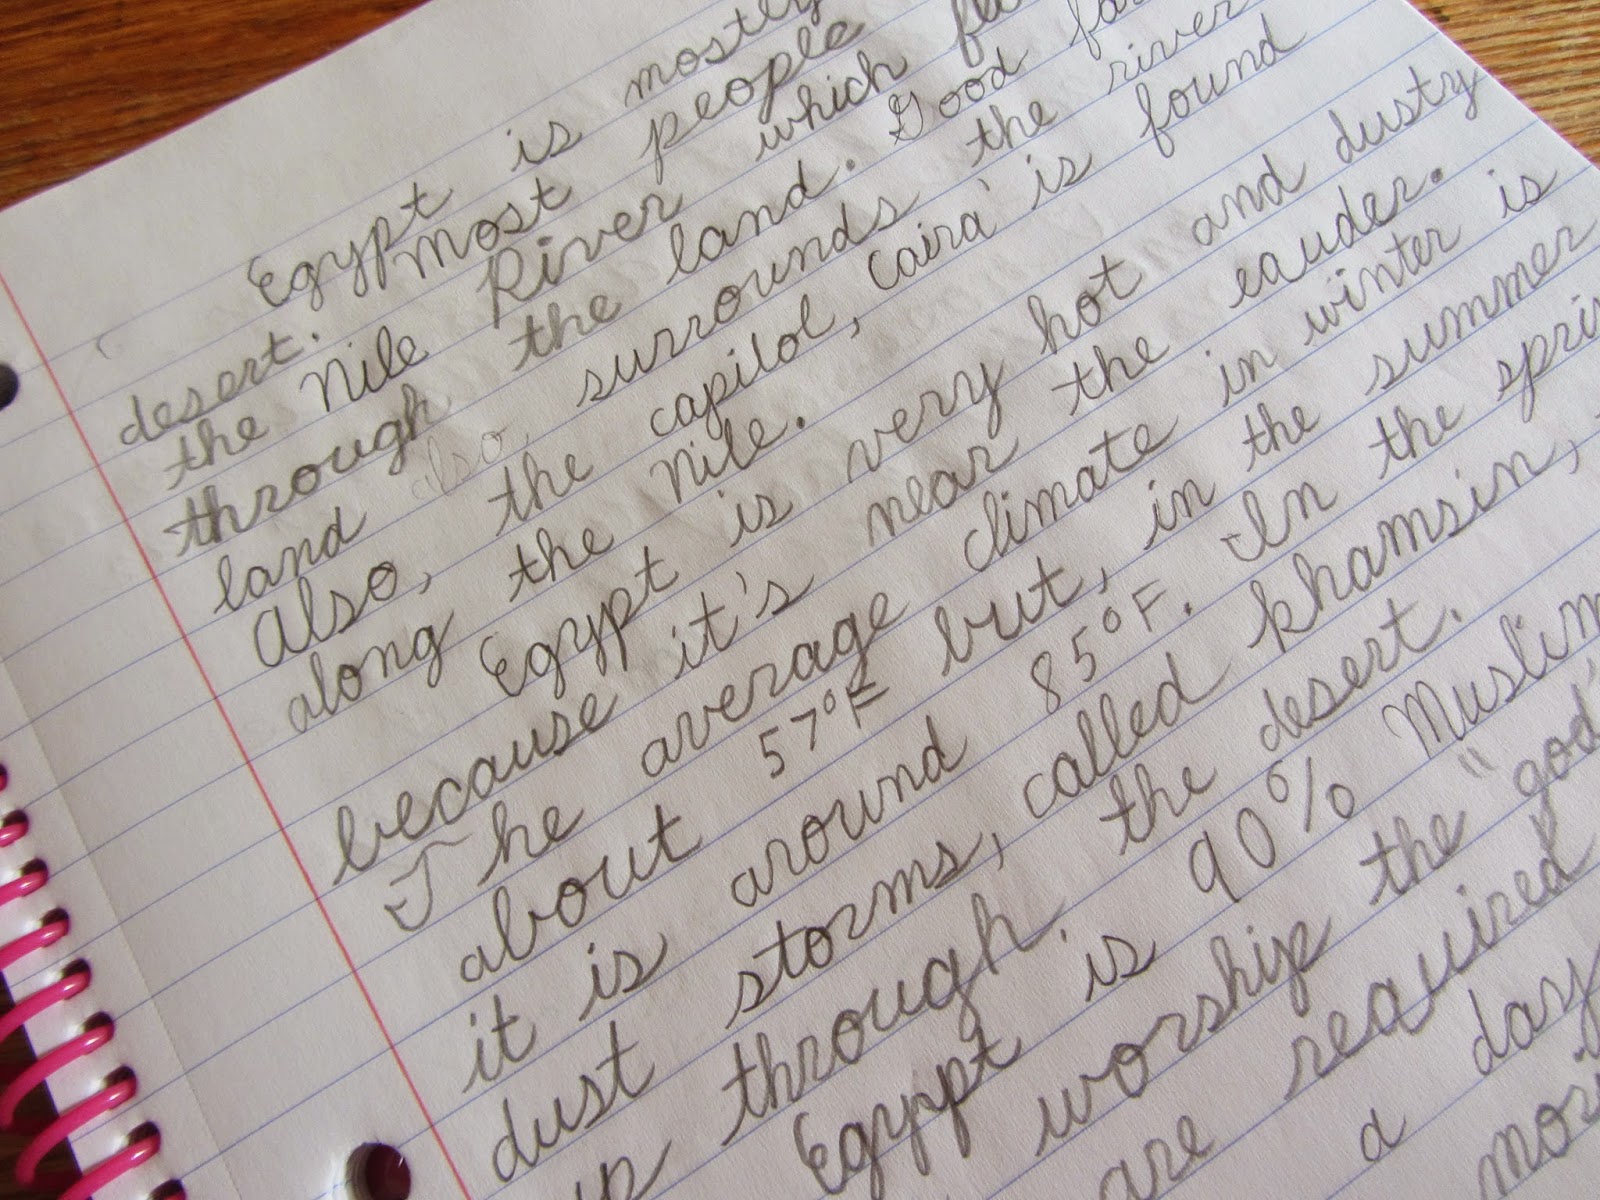 Egypt is mostly
desert. Most people
the Nile River which
through the land. Good
land also, surrounds the river
Also, the capilol, Caira' is found
along the Nile.
Egypt is very hot and dusty
because it's near the eauder.
The average climate in winter is
about 57°F but, in the summer
it is around 85°F. In the spri
dust storms, called khamsin,
up through the desert.
Egypt is 90% Muslim
worship the "god"
are required
a day